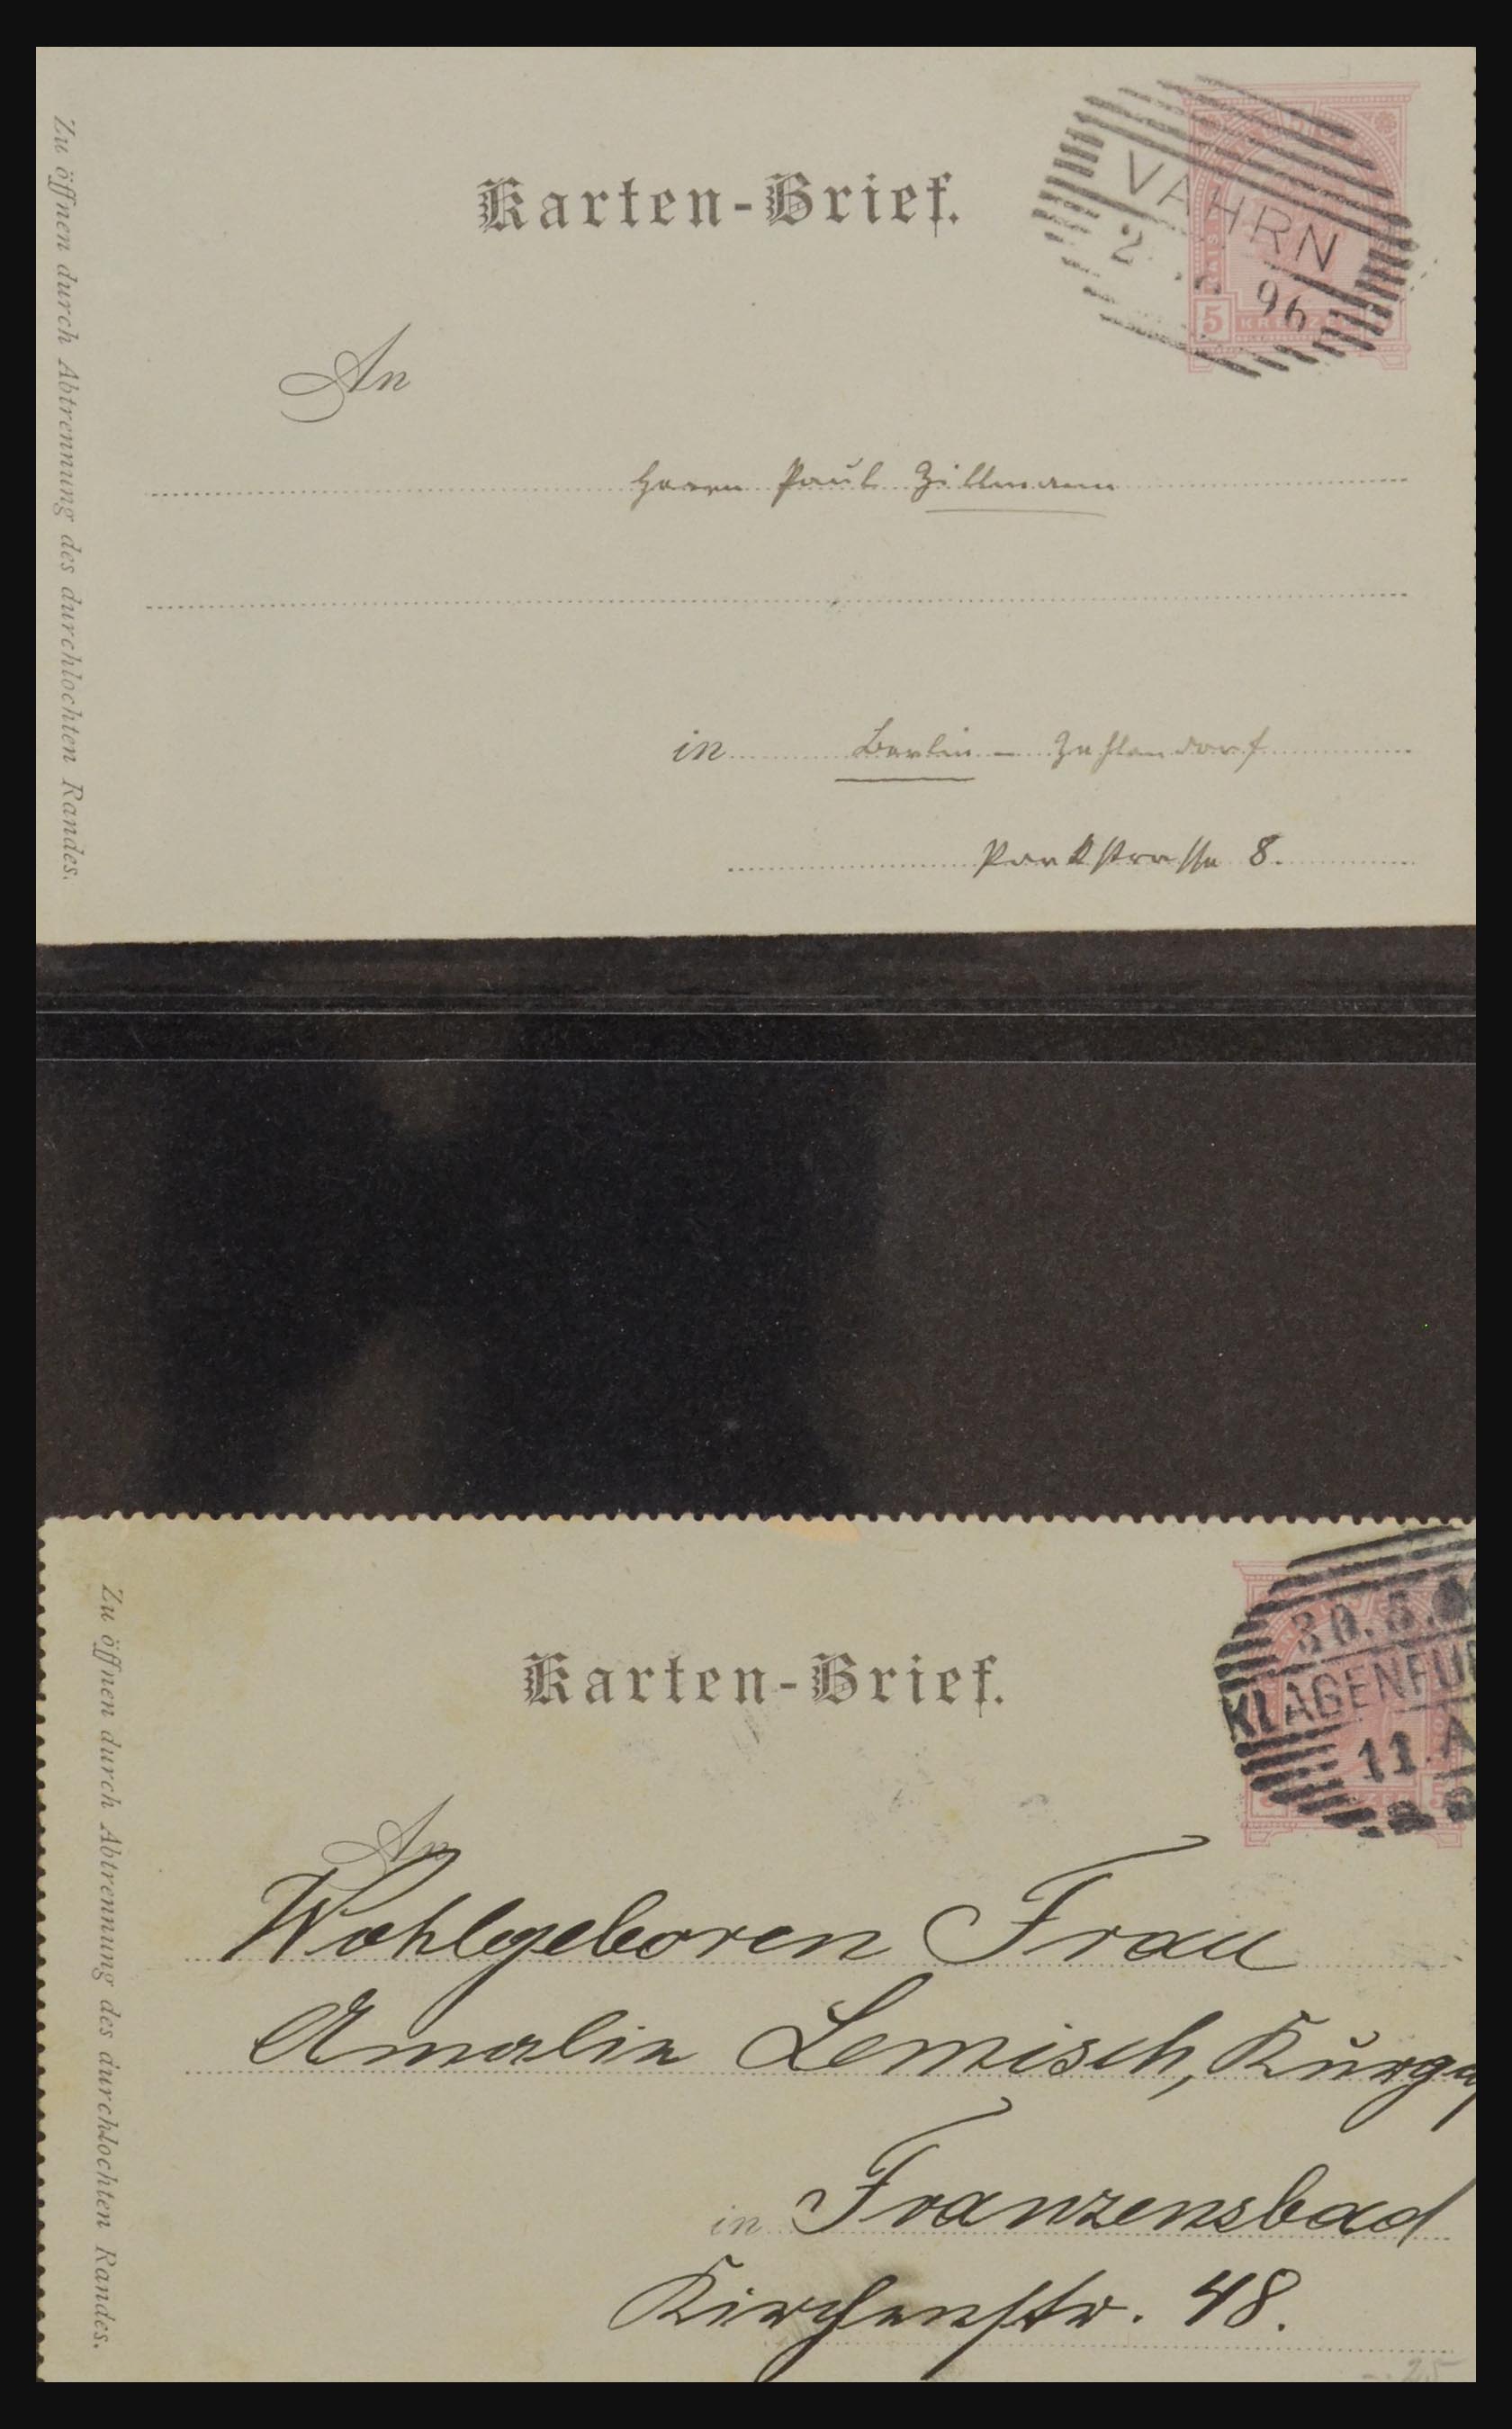 Zu öffnen durch Abtrennung des durchlochten Randes.
Karten-Brief.
VAHRN
2 96
5 KREUZ
An
Herrn Paul Zillmann
in Berlin - Zehlendorf
Parkstrasse 8.
Zu öffnen durch Abtrennung des durchlochten Randes.
Karten-Brief.
30.5.
KLAGENFU
11.A
5
An
Wohlgeboren Frau
Amalie Lemisch, Kurga
in Franzensbad
Kirchenstr. 48.
25